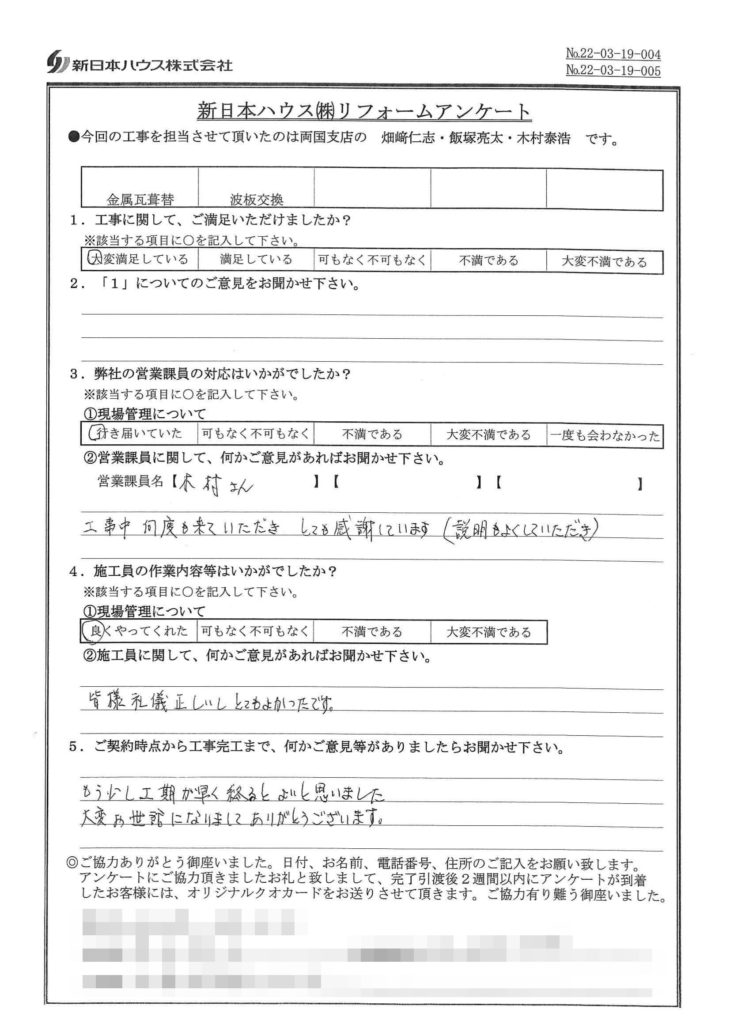 新日本ハウス株式会社
№22-03-19-004
№22-03-19-005
新日本ハウス㈱リフォームアンケート
●今回の工事を担当させて頂いたのは両国支店の 畑﨑仁志・飯塚亮太・木村泰浩 です。
金属瓦葺替 波板交換
1．工事に関して、ご満足いただけましたか？
※該当する項目に○を記入して下さい。
大変満足している 満足している 可もなく不可もなく 不満である 大変不満である
2．「1」についてのご意見をお聞かせ下さい。
3．弊社の営業課員の対応はいかがでしたか？
※該当する項目に○を記入して下さい。
①現場管理について
行き届いていた 可もなく不可もなく 不満である 大変不満である 一度も会わなかった
②営業課員に関して、何かご意見があればお聞かせ下さい。
営業課員名【木村さん 】【 】【 】
工事中 何度も来ていただき とても感謝しています（説明もよくしていただき）
4．施工員の作業内容等はいかがでしたか？
※該当する項目に○を記入して下さい。
①現場管理について
良くやってくれた 可もなく不可もなく 不満である 大変不満である
②施工員に関して、何かご意見があればお聞かせ下さい。
皆様礼儀正しいし とてもよかったです。
5．ご契約時点から工事完工まで、何かご意見等がありましたらお聞かせ下さい。
もう少し工期が早く終るとよいと思いました
大変お世話になりまして ありがとうございます。
◎ご協力ありがとう御座いました。日付、お名前、電話番号、住所のご記入をお願い致します。
アンケートにご協力頂きましたお礼と致しまして、完了引渡後2週間以内にアンケートが到着
したお客様には、オリジナルクオカードをお送りさせて頂きます。ご協力有り難う御座いました。